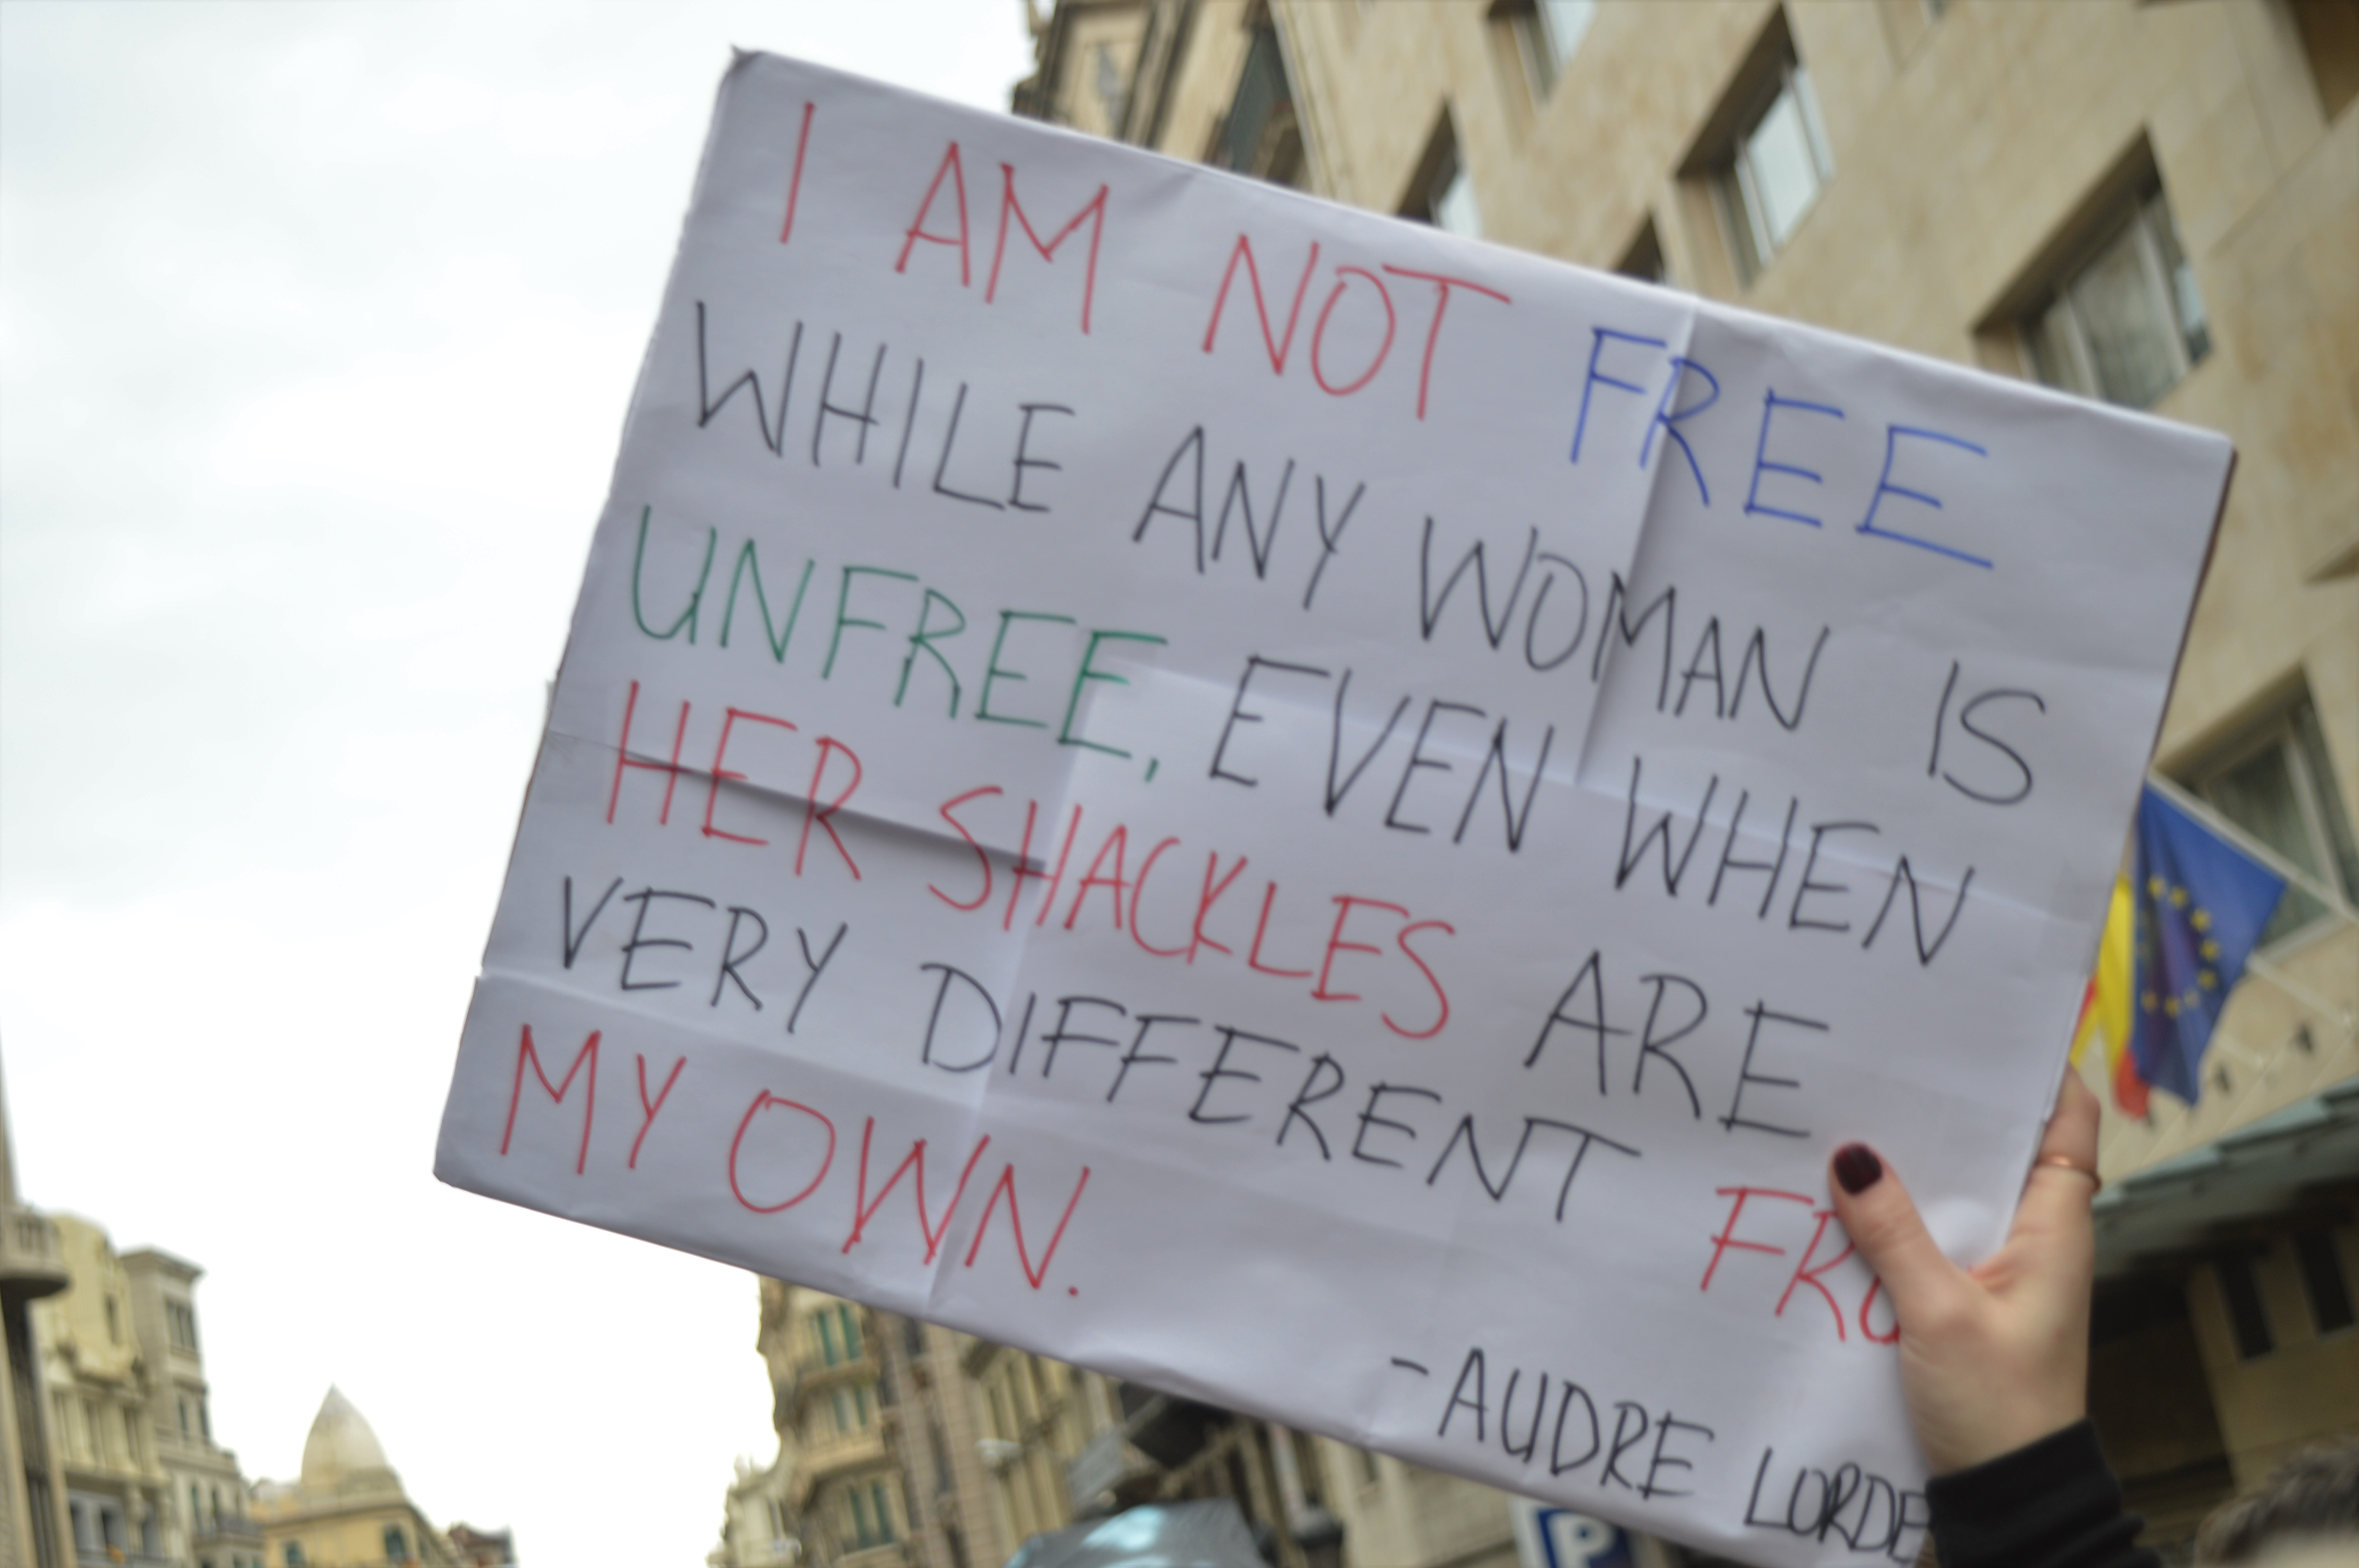 I AM NOT FREE
WHILE ANY WOMAN IS
UNFREE, EVEN WHEN
HER SHACKLES ARE
VERY DIFFERENT FRO
MY OWN.
-AUDRE LORDE
P